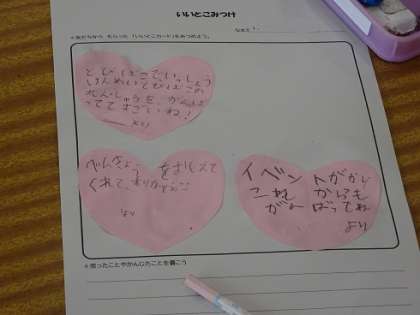 いいとこみつけ
なまえ
とびばこで、いっしょう
けんめいとびばこの
れんしゅうを、がんば
っててすごいね!
より
べんきょうをおしえて
くれて、ありがとう
より
イベントがかり
これからも
がんばってね
より
＊思ったことやかんじたことを書こう